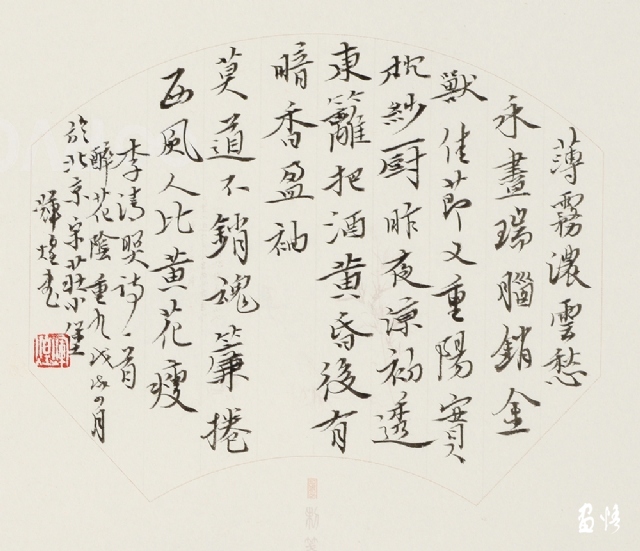 薄霧濃雲愁
永晝瑞腦銷金
獸佳節又重陽寶
枕紗厨昨夜涼初透
東籬把酒黄昏後有
暗香盈袖
莫道不銷魂簾捲
西風人比黄花瘦
李清照詩一首
醉花陰重九戊戌四月
於北京宋莊小堡
輝煌书